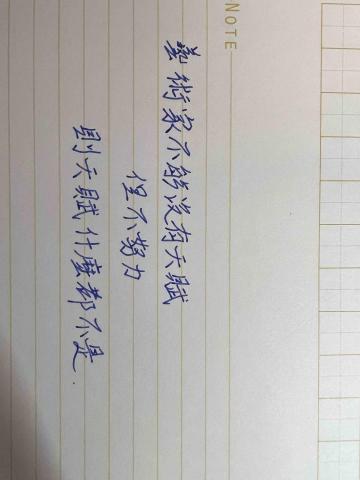 NOTE
藝術家不能沒有天賦
但不努力
則天賦什麼都不是.